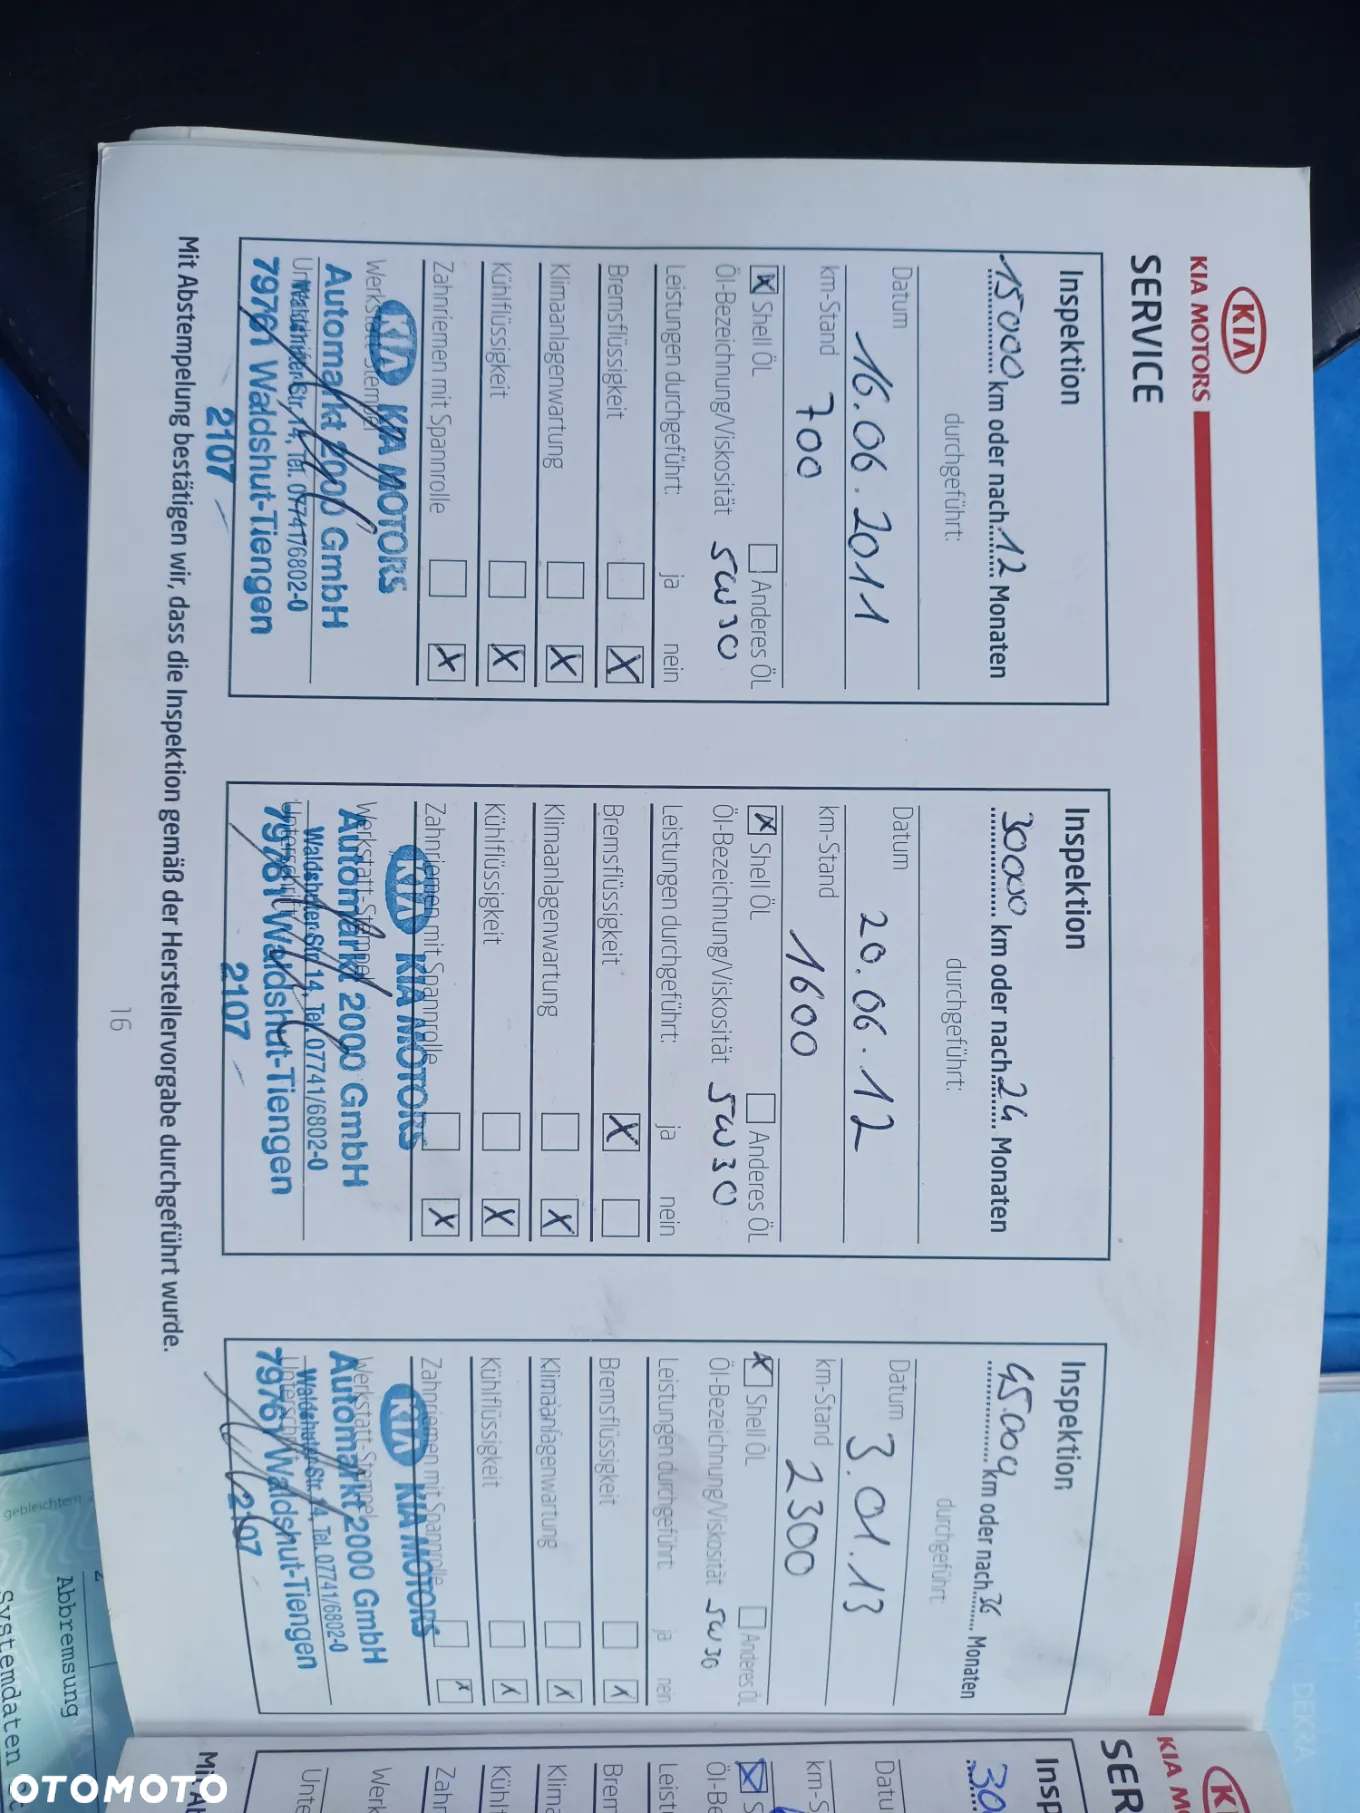 KIA
KIA MOTORS
SERVICE
Inspektion
15000 km oder nach 12 Monaten
durchgeführt:
Datum 16.06.2011
km-Stand 700
x Shell ÖL Anderes ÖL
Öl-Bezeichnung/Viskosität 5W30
Leistungen durchgeführt: ja nein
Bremsflüssigkeit X
Klimaanlagenwartung X
Kühlflüssigkeit X
Zahnriemen mit Spannrolle X
Werkstatt-Stempel
KIA KIA MOTORS
Automarkt 2000 GmbH
79761 Waldshut-Tiengen
2107
Inspektion
30000 km oder nach 24 Monaten
durchgeführt:
Datum 20.06.12
km-Stand 1600
x Shell ÖL Anderes ÖL
Öl-Bezeichnung/Viskosität 5W30
Leistungen durchgeführt: ja nein
Bremsflüssigkeit X
Klimaanlagenwartung X
Kühlflüssigkeit X
Zahnriemen mit Spannrolle X
KIA KIA MOTORS
Werkstatt-Stempel
Automarkt 2000 GmbH
Waldshuter Str. 14, Tel. 07741/6802-0
Unterschrift
79761 Waldshut-Tiengen
2107
Inspektion
45.000 km oder nach 36 Monaten
durchgeführt:
Datum 3.01.13
km-Stand 2300
x Shell ÖL Anderes ÖL
Öl-Bezeichnung/Viskosität 5W30
Leistungen durchgeführt: ja nein
Bremsflüssigkeit x
Klimaanlagenwartung x
Kühlflüssigkeit x
Zahnriemen mit Spannrolle x
KIA KIA MOTORS
Werkstatt-Stempel
Automarkt 2000 GmbH
Waldshuter Str. 14, Tel. 07741/6802-0
Unterschrift
79761 Waldshut-Tiengen
2107
Mit Abstempelung bestätigen wir, dass die Inspektion gemäß der Herstellervorgabe durchgeführt wurde.
16
KIA M
SER
Insp
30
Datu
km-S
x S
Öl-Be
Leist
Brem
Klima
Kühlf
Zahn
Werk
Unte
gebleichtem
Abbremsung
Systemdaten
DEKRA
OTOMOTO